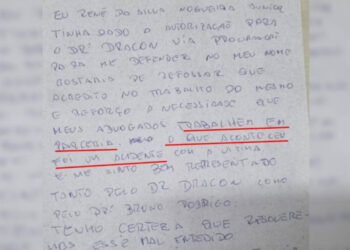 EU RENÊ DA SILVA NOGUEIRA JUNIOR
TINHA DADO A AUTORIZAÇÃO PARA
O DRº DRACON VIA PROCURAÇÃO
PARA ME DEFENDER NO MEU NOME
GOSTARIA DE REFORSAR QUE
ACREDITO NO TRABALHO DO MESMO
E REFORÇO A NECESSIDADE QUE
MEUS ADVOGADOS TRABALHEM EM
PARCERIA O QUE ACONTECEU
FOI UM ACIDENTE COM A VITIMA
E ME SINTO BEM REPRESENTADO
TANTO PELO DR DRACON COMO
PELO DRº BRUNO RODRIGO.
TENHO CERTEZA QUE RESOLVERE-
MOS ESSE MAL ENTEDIDO